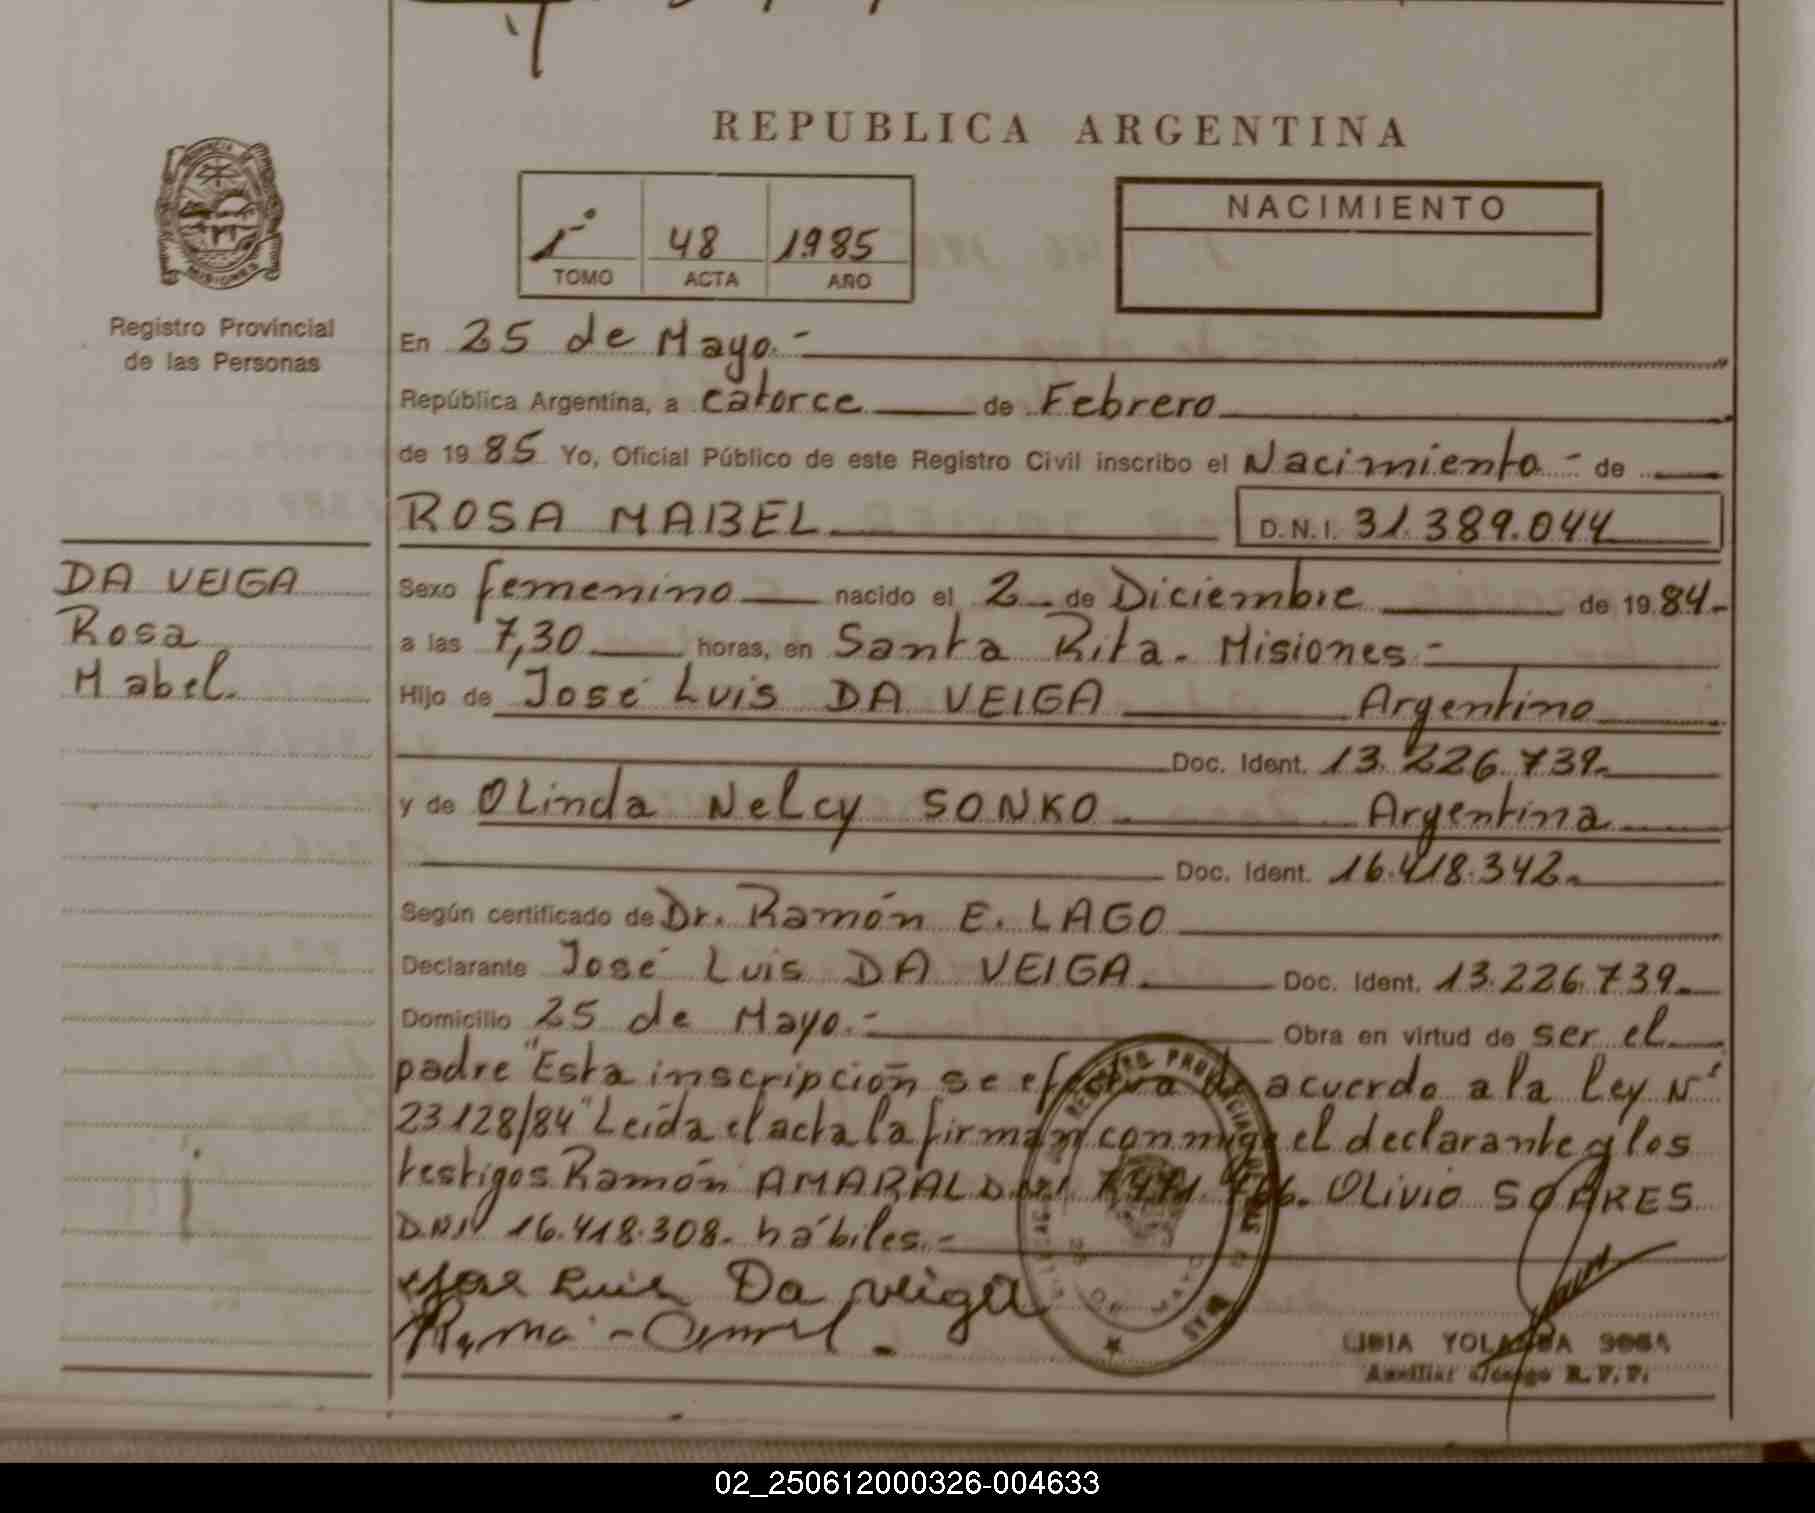 REPUBLICA ARGENTINA
PROVINCIA DE
MISIONES
Registro Provincial
de las Personas
1º 48 1985
TOMO ACTA AÑO
NACIMIENTO
En 25 de Mayo.-
República Argentina, a catorce de Febrero
de 1985 Yo, Oficial Público de este Registro Civil inscribo el Nacimiento - de
ROSA MABEL D.N.I. 31.389.044
DA VEIGA
Rosa
Mabel.
Sexo femenino nacido el 2 de Diciembre de 1984.-
a las 7,30 horas, en Santa Rita. Misiones.-
Hijo de José Luis DA VEIGA Argentino
Doc. Ident. 13.226.739.
y de Olinda Nelcy SONKO Argentina
Doc. Ident. 16.418.342.
Según certificado de Dr. Ramón E. LAGO
Declarante José Luis DA VEIGA Doc. Ident. 13.226.739.
Domicilio 25 de Mayo.- Obra en virtud de ser el
padre "Esta inscripción se efectua de acuerdo a la Ley Nº
23128/84" Leída el acta la firman conmigo el declarante y los
testigos Ramón AMARAL Olivio SOARES
D.N.I. 16.418.308. hábiles.-
Jose Luis Da Veiga
LIDIA YOLANDA SOSA
Auxiliar a/cargo R.P.P.
02_250612000326-004633